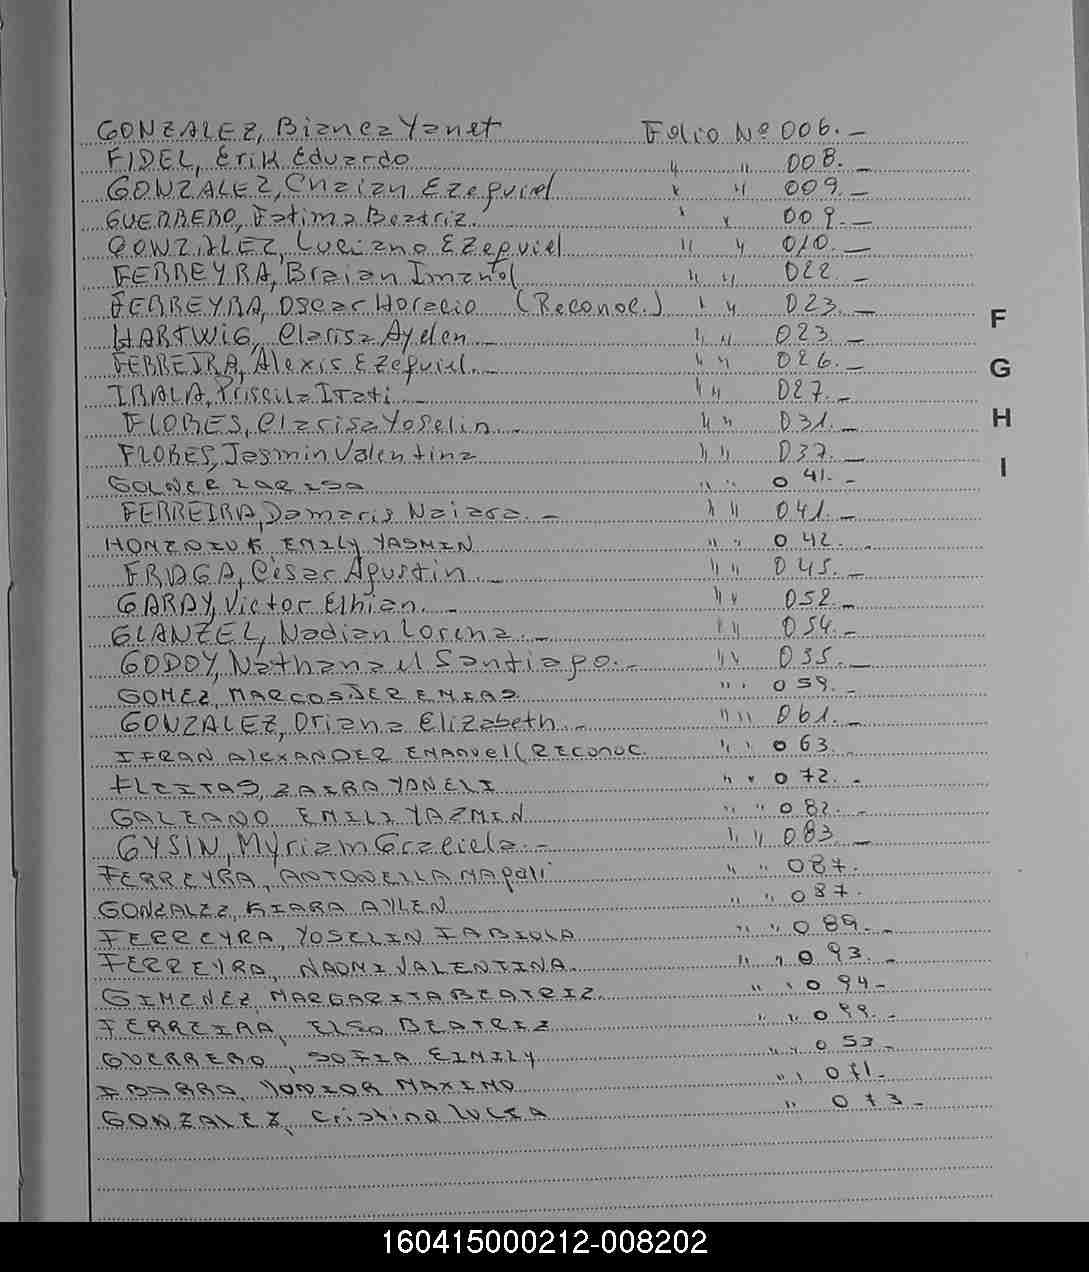 GONZALEZ, Bianca Yanet Folio Nº 006.-
FIDEL, Erik Eduardo " " 008.-
GONZALEZ, Chaian Ezequiel " " 009.-
GUERRERO, Fatima Beatriz. " " 009.-
GONZALEZ, Luciano Ezequiel " " 010.-
FERREYRA, Braian Imanol " " 022.-
FERREYRA, Oscar Horacio (Reconoc.) " " 023.-
HARTWIG, Clarisa Ayelen.- " " 023.-
FERREIRA, Alexis Ezequiel.- " " 026.-
IBALA, Priscila Itati.- " " 027.-
FLORES, Clarisa Yoselin.- " " 031.-
FLORES, Jasmin Valentina " " 037.-
GOLNER LARISA " " 041.-
FERREIRA, Damaris Naiara.- " " 041.-
EMILY YASMIN " " 042.
FRAGA, Cesar Agustin.- " " 045.-
GARAY, Victor Elhian.- " " 052.-
GLANZEL, Nadian Lorena.- " " 054.-
GODOY, Nathanael Santiago.- " " 055.-
GOMEZ, MARCOS JEREMIAS " " 059.-
GONZALEZ, Oriana Elizabeth.- " " 061.-
IFRAN AlexANDER EMANuel (RECONOC. " " 063.
FLEITAS, ZAIRA YANELI " " 072.-
GALEANO EMILI YAZMIN " " 082.-
GYSIN, Myriam Graciela.- " " 083.-
FERREYRA, ANTONELLA MApoli " " 087.
GONZALEZ, KIARA AYLEN " " 087.
FERREYRA, YOSELIN FABIOLA " " 089.-
FERREYRA, NAOMI VALENTINA " " 093.-
GIMENEZ, MARGARITA BEATRIZ. " " 094-
FERREIRA, ELSA BEATRIZ " " 099.-
GUERRERO, SOFIA EIMILY " " 053-
IBARRA, JUNIOR MAXIMO " " 071-
GONZALEZ, Cristina LUCIA " 073-
F
G
H
I
160415000212-008202